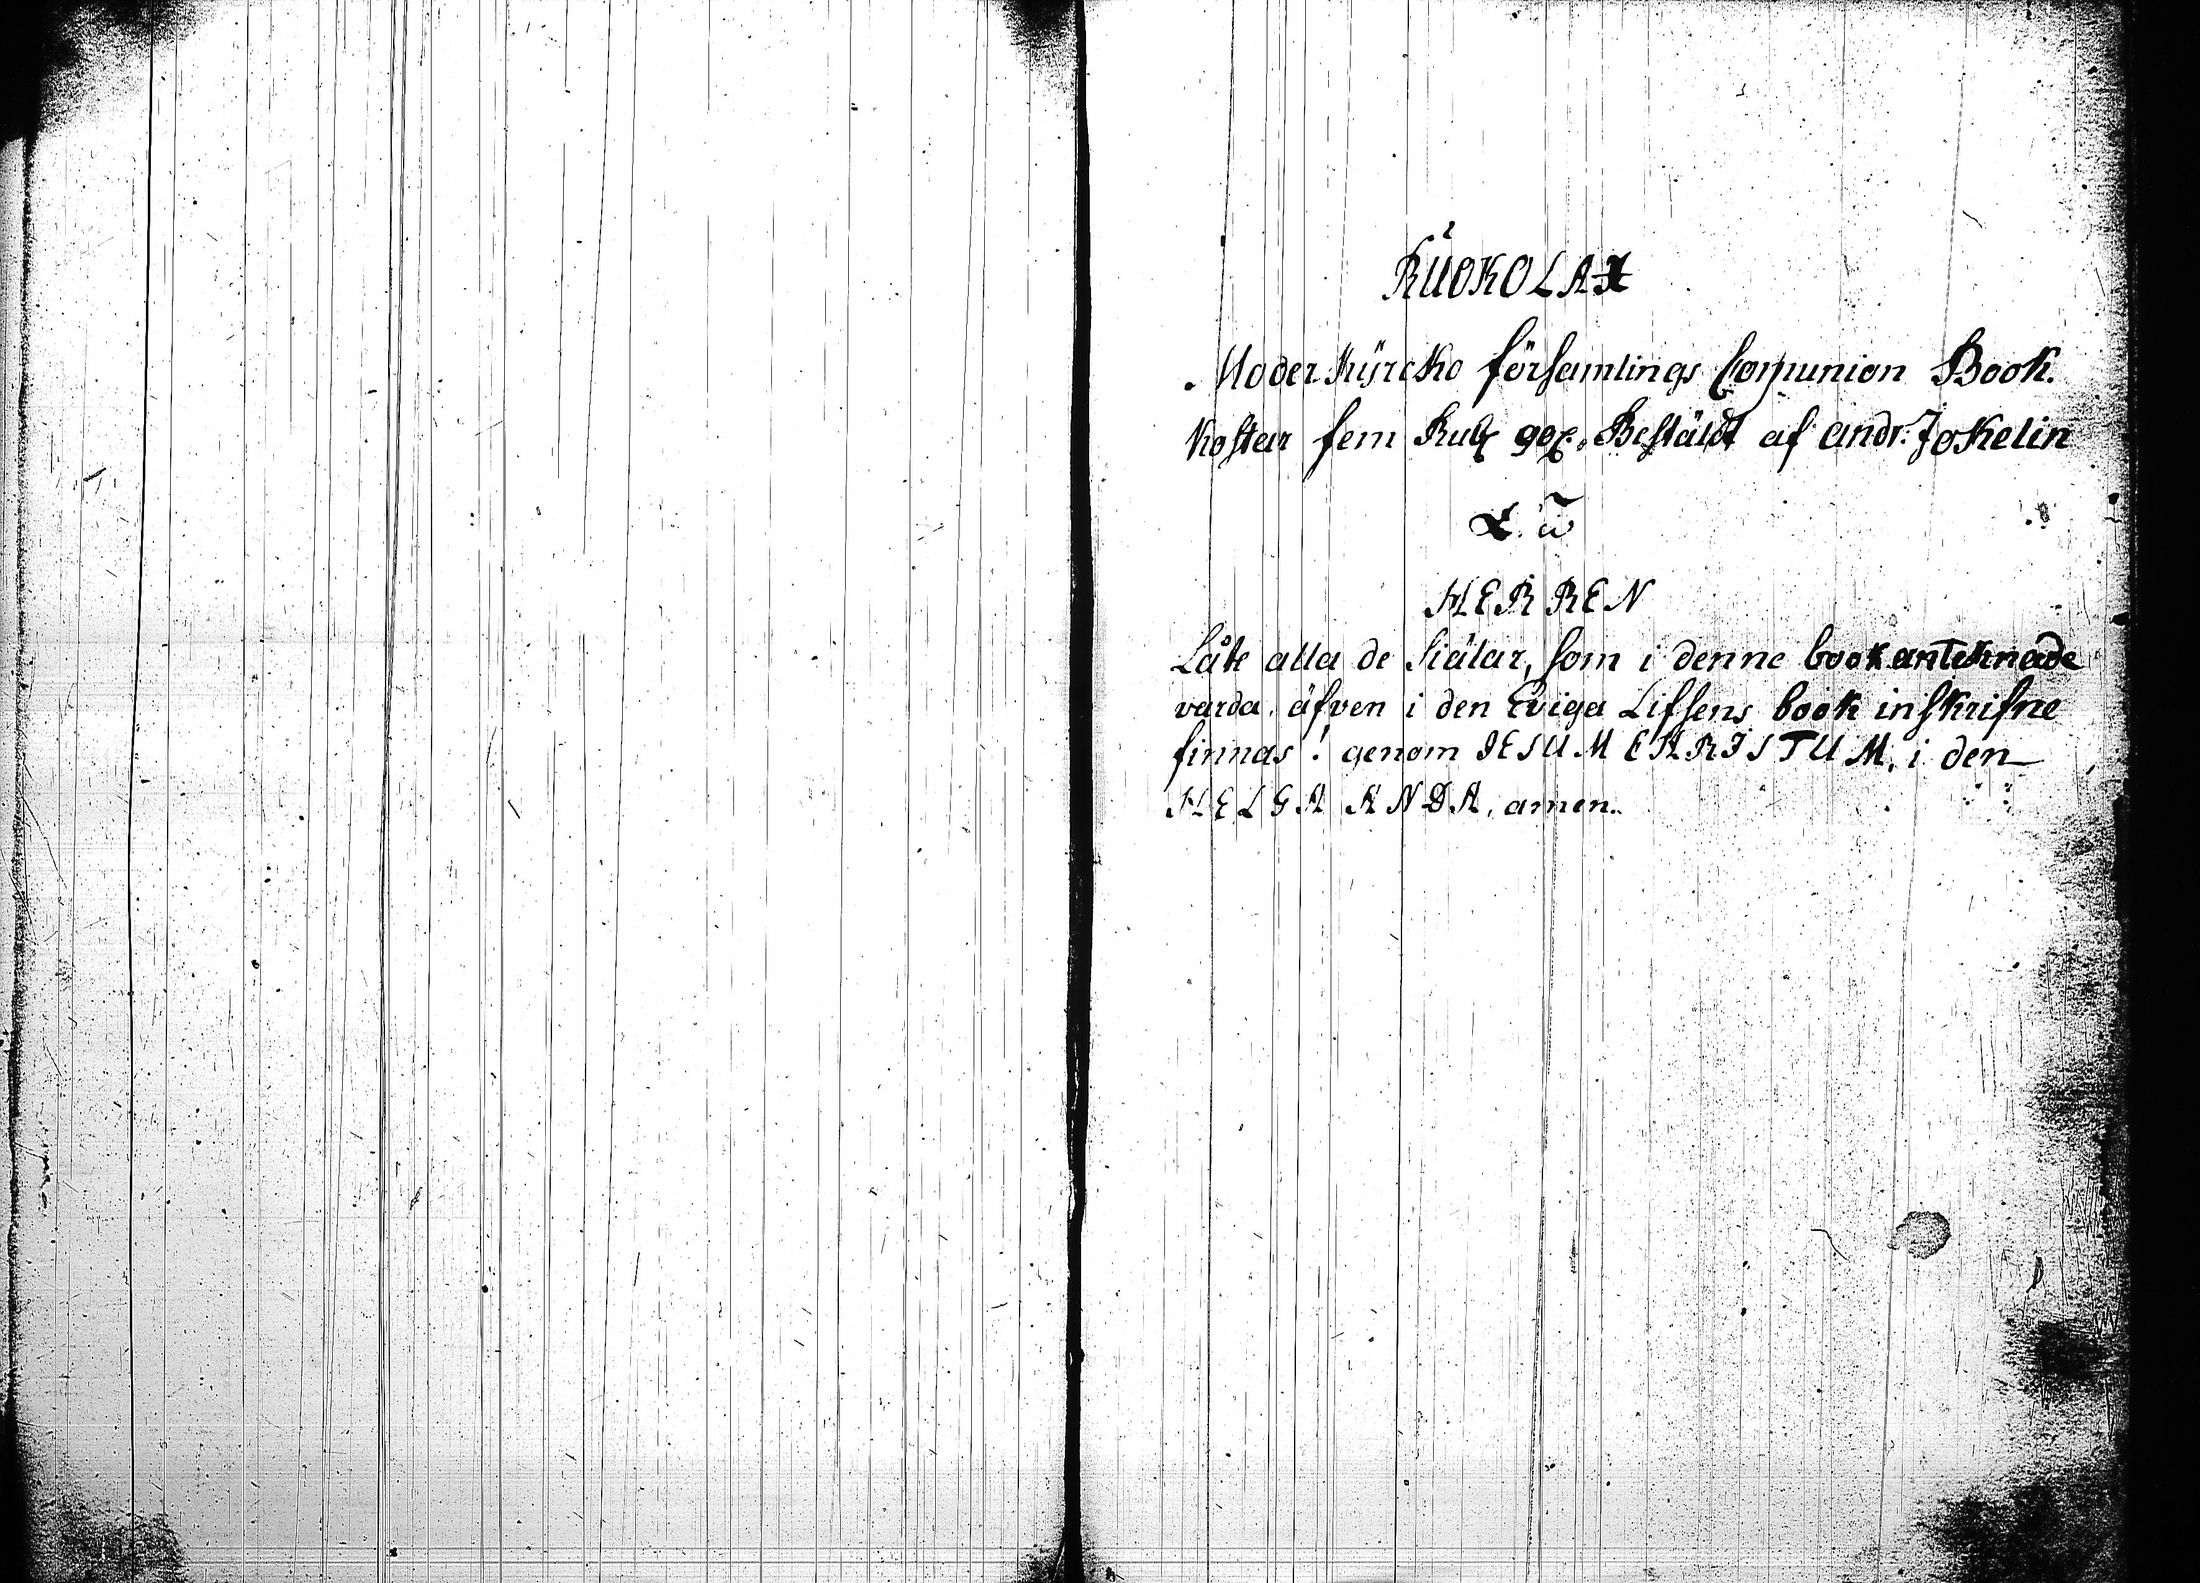 RUOKOLAX
Moder kyrcko församlings Com̃union Book.
kostar fem Rub 90 x. Bestäldt af andr: Jokelin
α. ω
HERREN
Låte alla de siälar, som i denne book anteknade
varda, äfven i den Eviga Lifsens book inskrifne
finnas! genom JESUM CHRISTUM, i den
HELGA ANDA, amen.